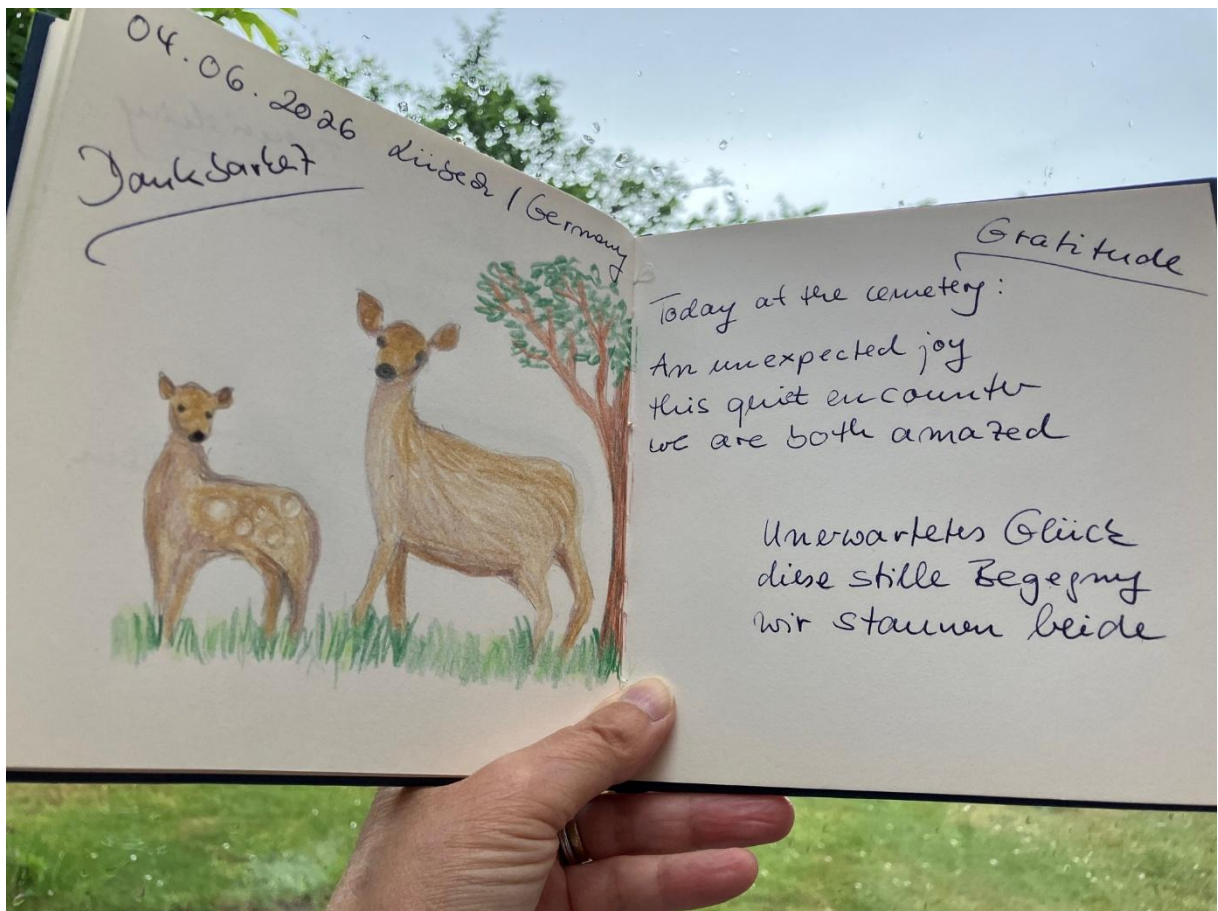 04.06.2026 Lübeck / Germany
Dankbarkeit
Gratitude
Today at the cemetery:
An unexpected joy
this quiet encounter
we are both amazed
Unerwartetes Glück
diese stille Begegnung
wir staunen beide